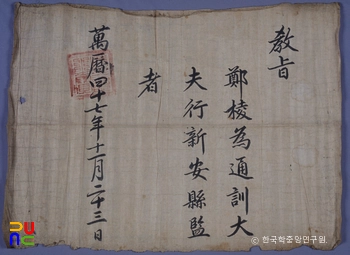 敎旨
鄭棱為通訓大
夫行新安縣監
者
萬曆四十七年十一月二十三日
© 한국학중앙연구원